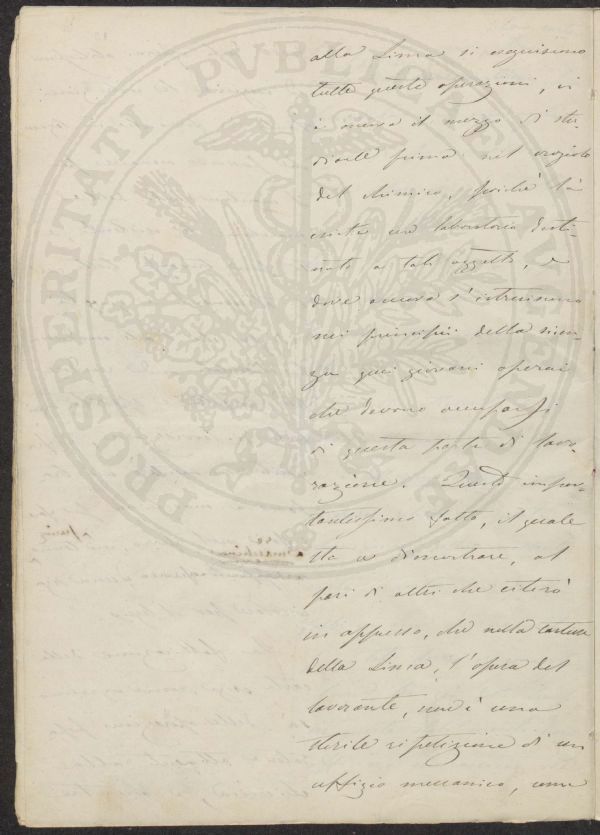 PROSPERITATI PVBLICAE AVGENDAE
alla Linea si eseguiscono
tutte queste operazioni, vi
è ancora il mezzo di stu-
diarle prima nel
del chimico, poichè là
esiste un laboratorio desti-
nato a tali oggetti, e
dove ancora s'istruiscono
nei principii della scien-
za quei giovani operai
che devono occuparsi
di questa parte di lavo-
razione. Questo impor-
tantissimo fatto, il quale
sta a dimostrare, al
pari di altri che citerò
in appresso, che nella
della Linea, l'opera del
lavorante, non è una
sterile ripetizione di un
uffizio meccanico, come